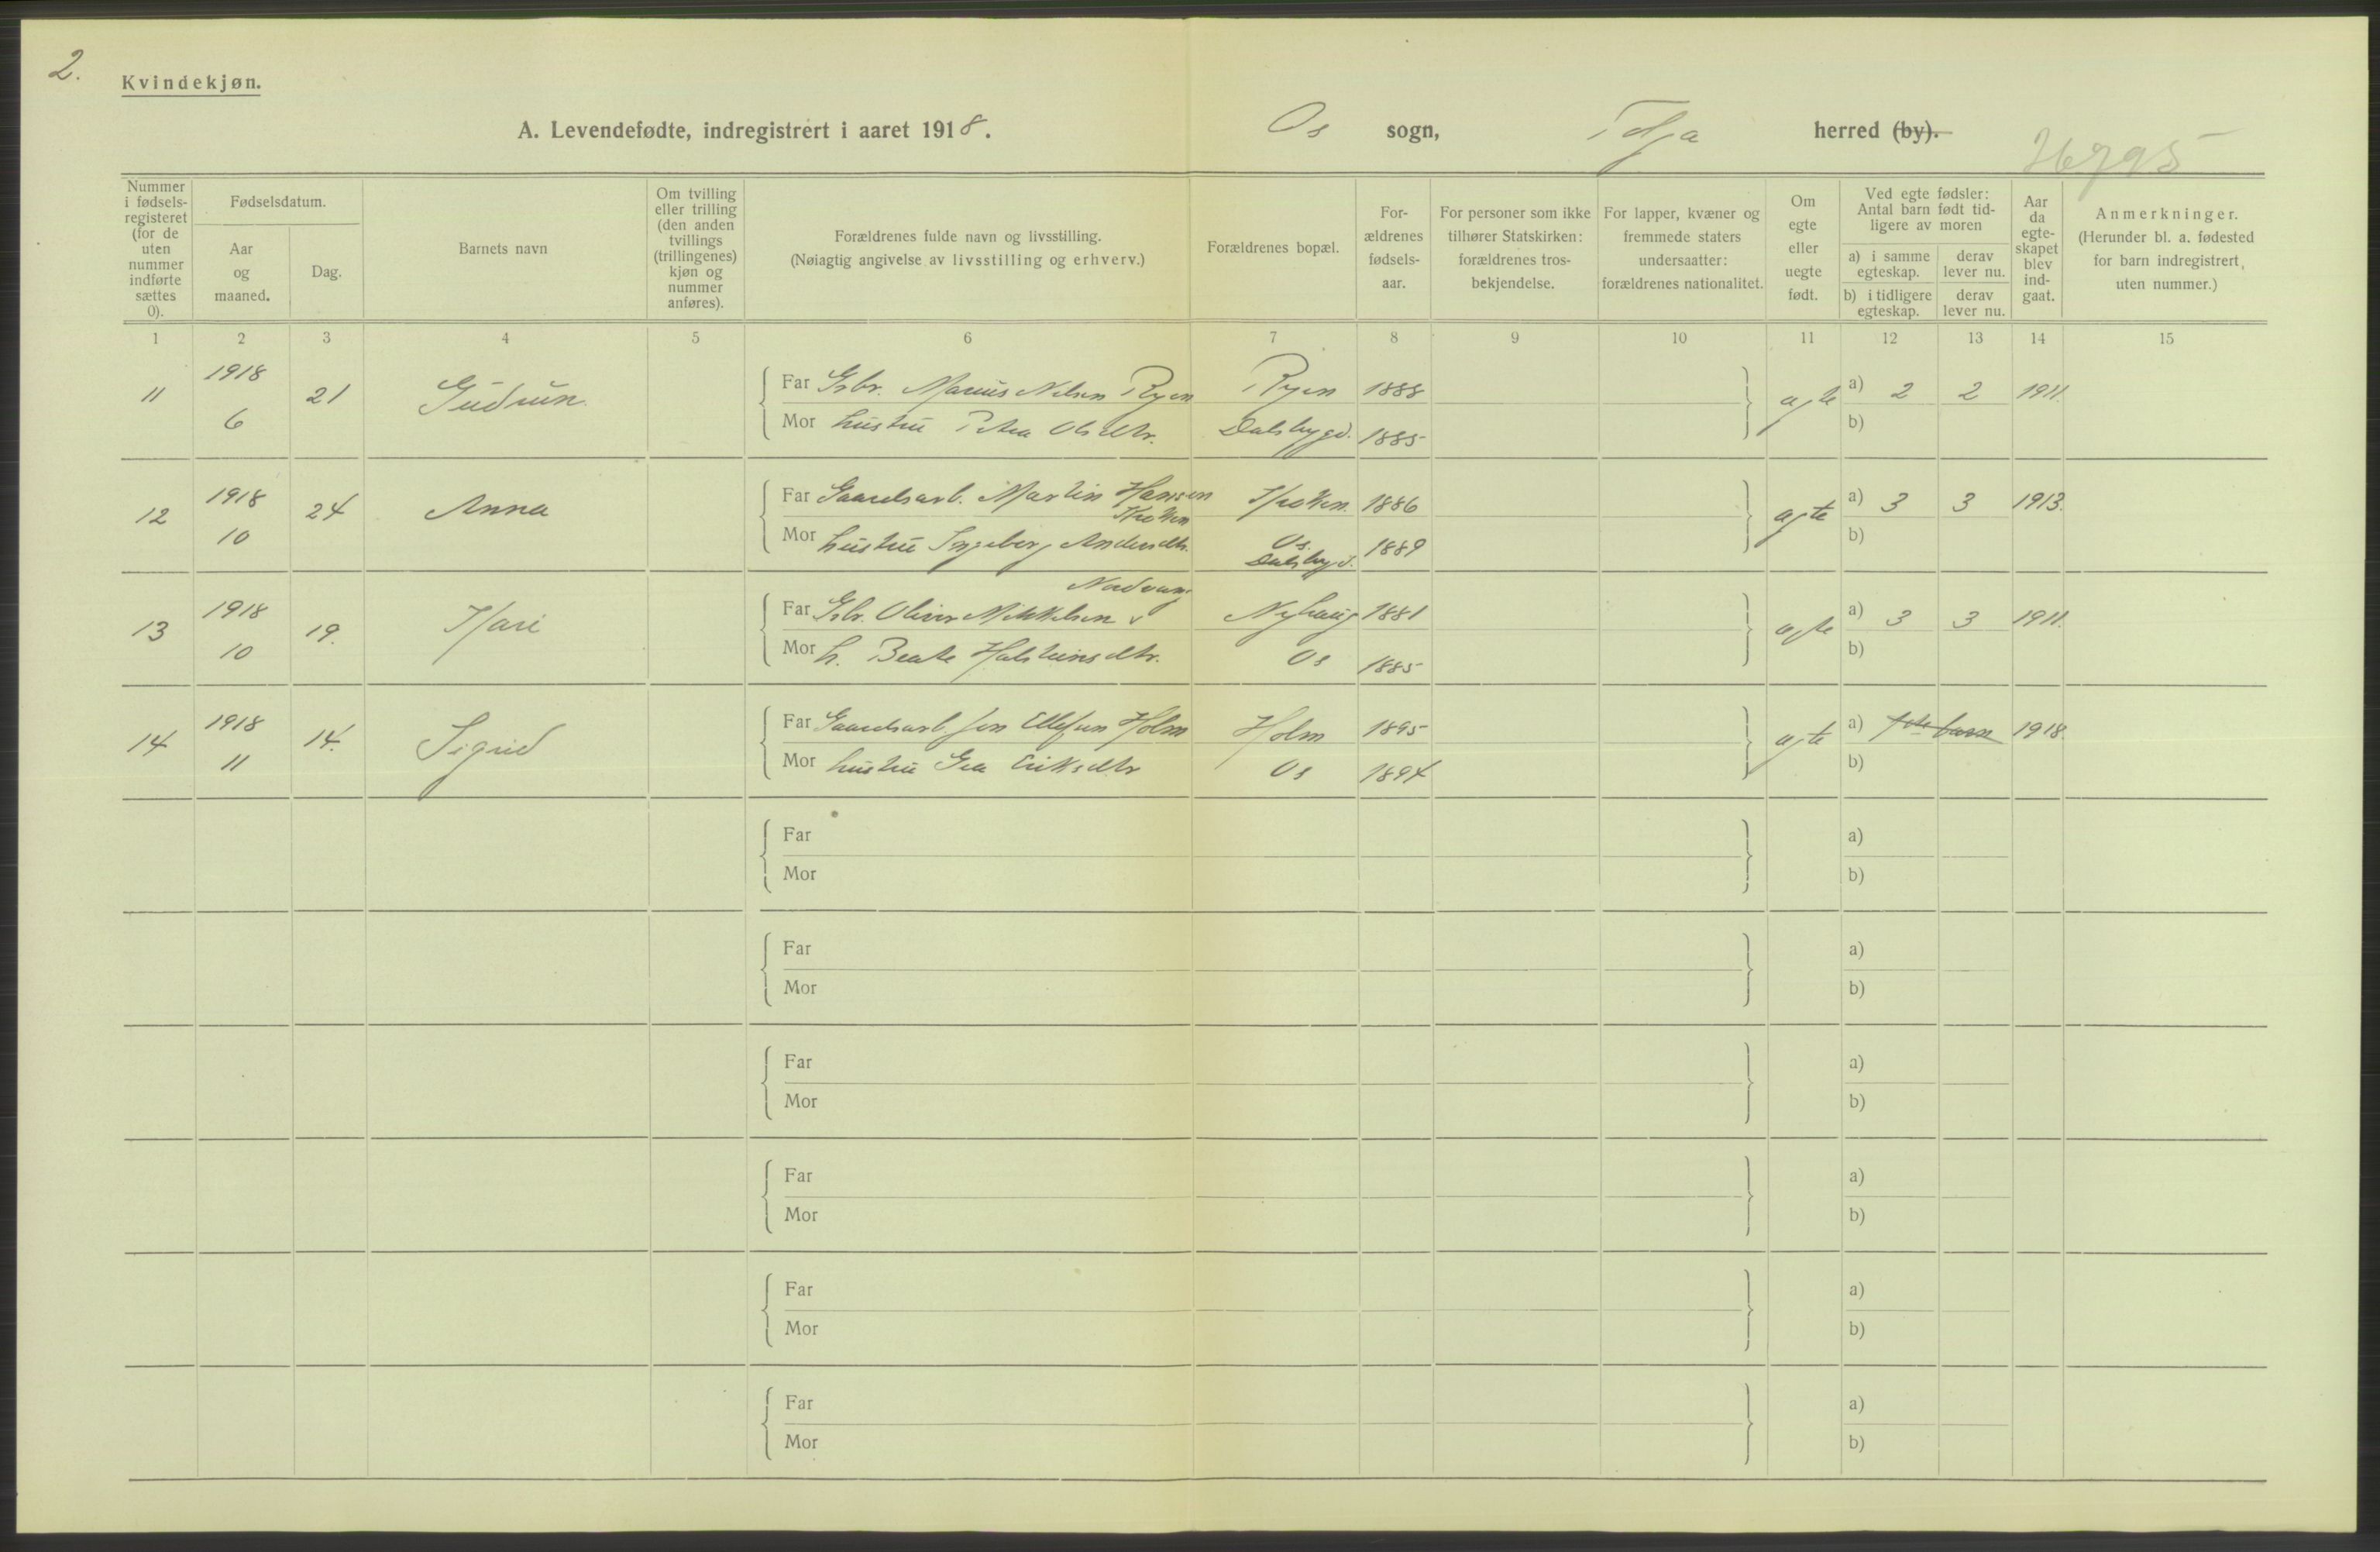 2.
Kvindekjøn.
A. Levendefødte, indregistrert i aaret 1918. Os sogn, Tolga herred (by).
Nummer i fødselsregisteret (for de uten nummer indførte sættes 0).
Fødselsdatum.
Aar og maaned.
Dag.
Barnets navn
Om tvilling eller trilling (den anden tvillings (trillingenes) kjøn og nummer anføres).
Forældrenes fulde navn og livsstilling.
(Nøiagtig angivelse av livsstilling og erhverv.)
Forældrenes bopæl.
Forældrenes fødselsaar.
For personer som ikke tilhører Statskirken: forældrenes trosbekjendelse.
For lapper, kvæner og fremmede staters undersaatter: forældrenes nationalitet.
Om egte eller uegte født.
Ved egte fødsler: Antal barn født tidligere av moren
a) i samme egteskap.
derav lever nu.
b) i tidligere egteskap.
derav lever nu.
Aar da egteskapet blev indgaat.
Anmerkninger.
(Herunder bl. a. fødested for barn indregistrert, uten nummer.)
1 2 3 4 5 6 7 8 9 10 11 12 13 14 15
11 1918 6 21 Gudrun
Far Gbr. Marius Nilsen Ryen Ryen 1888 egte a) 2 2 1911.
Mor hustru Petra Olsdtr. Dalsbygd. 1885 b)
12 1918 10 24 Anna
Far Gaardsarb. Martin Hansen Kroken Kroken. 1886 egte a) 3 3 1913.
Mor hustru Ingeborg Andersdtr. Os Dalsbygd. 1889 b)
13 1918 10 19. Kari
Far Gbr. Oliver Mikkelsen Nordvang Nyhaug 1881 egte a) 3 3 1911.
Mor h. Beate Halsteinsdtr. Os 1885 b)
14 1918 11 14. Sigrid
Far Gaardsarb. Jon Ellefsen Holm Holm 1895 egte a) 1ste barn 1918.
Mor hustru Gea Eriksdtr Os 1894 b)
Far a)
Mor b)
Far a)
Mor b)
Far a)
Mor b)
Far a)
Mor b)
Far a)
Mor b)
Far a)
Mor b)